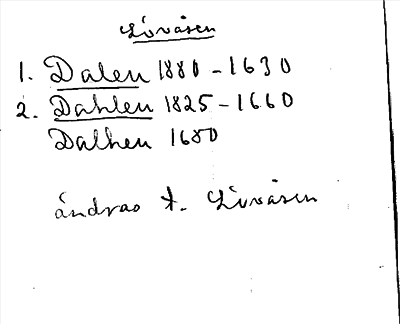 Lövåsen
1. Dalen 1880-1630
2. Dahlen 1825-1660
Dalhen 1680
ändras t. Lövåsen